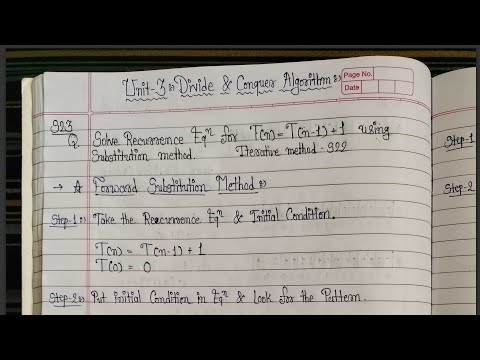 Unit-3 :- Divide & Conquer Algorithm :-
Page No.
Date
S23
Q Solve Recurrence Eqⁿ for T(n) = T(n-1) + 1 using
Substitution method. Iterative method - S22
→ ☆ Forward Substitution Method :-
Step-1 :- Take the Recurrence Eqⁿ & Initial Condition.
T(n) = T(n-1) + 1
T(0) = 0
Step-2 :- Put initial Condition in Eqⁿ & Look for the Pattern.
Step-1
Step-2